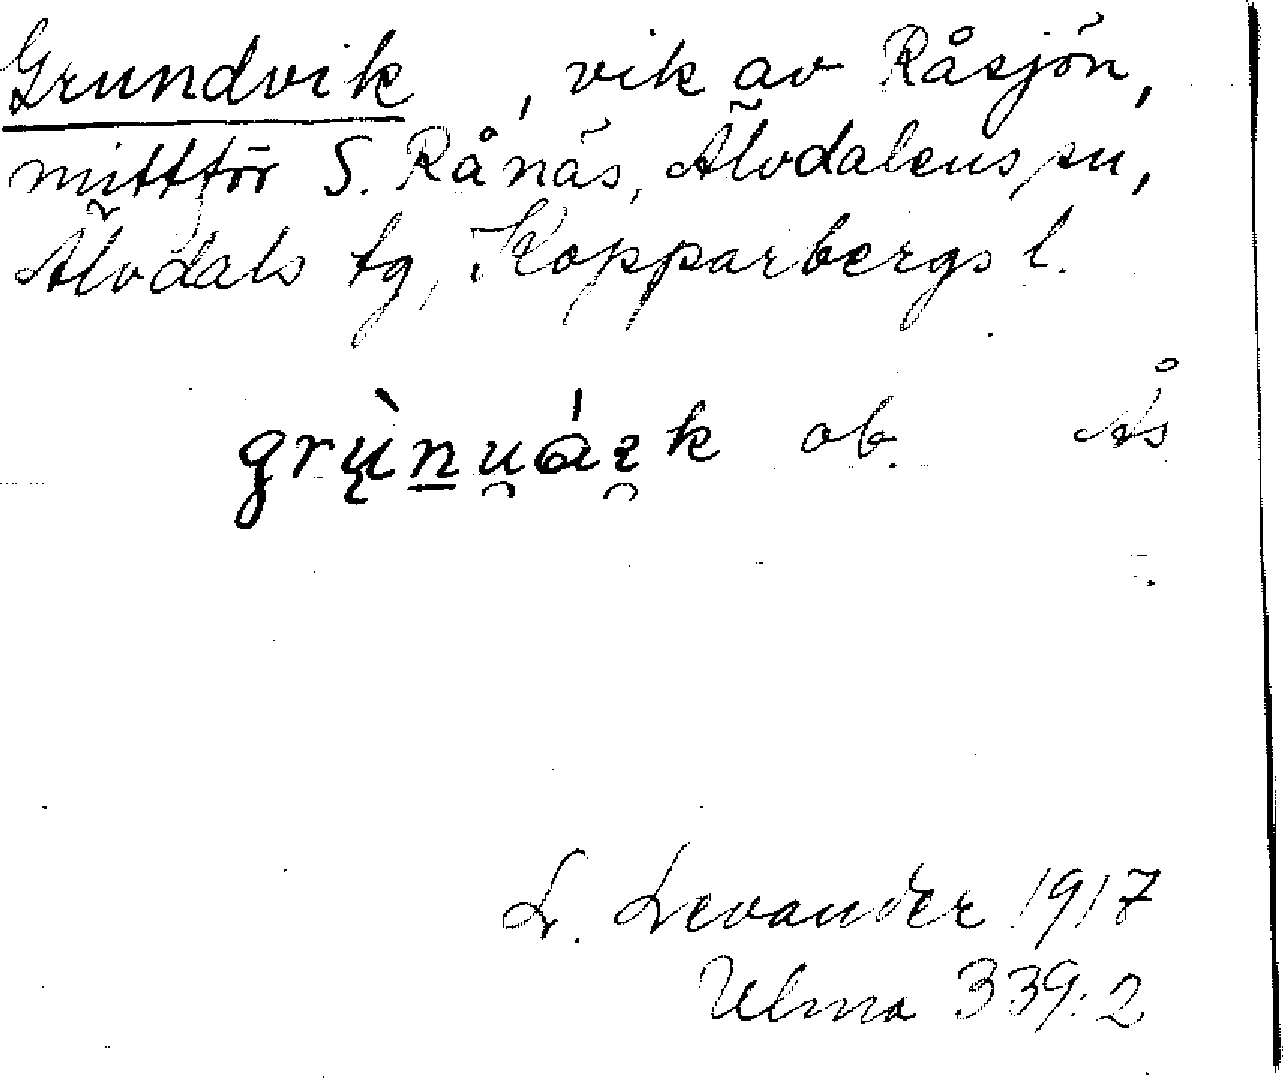 Grundvik, vik av Råsjön,
mittför S. Rånäs, Älvdalens sn,
Älvdals tg, Kopparbergs l.
grų̀n̲u̯áɪ̯k ob. Ås
L. Levander 1917
Ulma 339:2